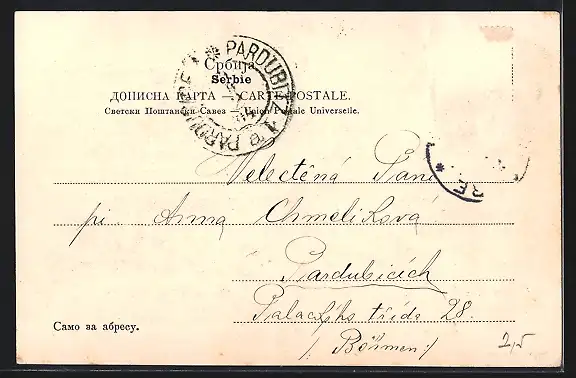 Србија
Serbie
ДОПИСНА КАРТА — CARTE POSTALE.
Светски Поштански Савез — Union Postale Universelle.
PARDUBITZ
PARDUBICE
RE
Velectěná Paní
pí. Anna Chmelíková
Pardubicích
Palackého třída 28.
/ Böhmen /
Само за абресу.
2,5